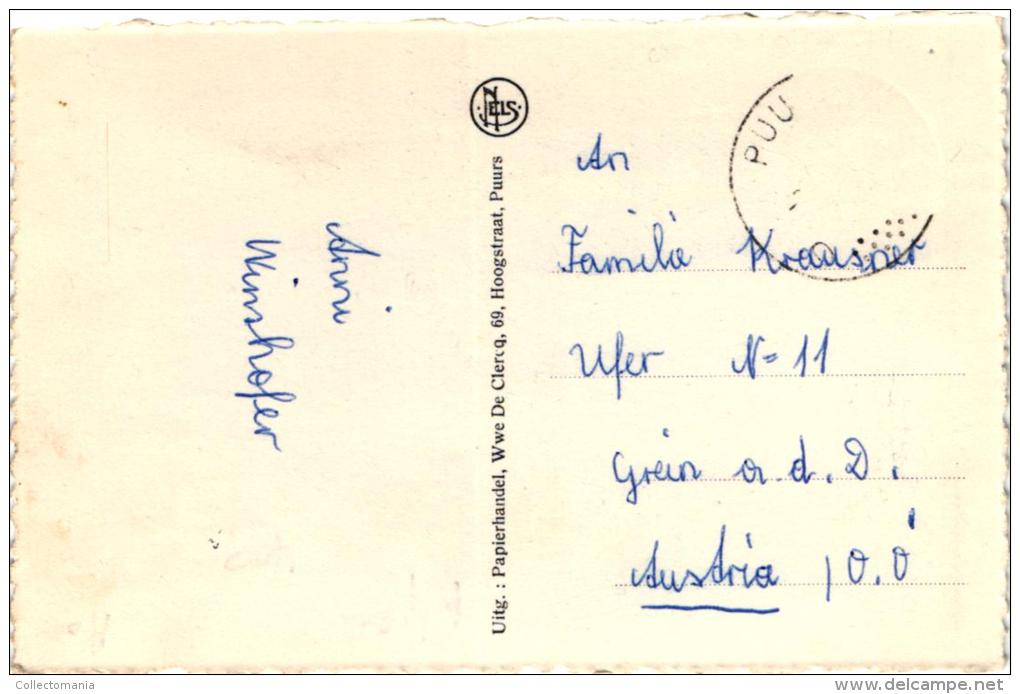 Anni
Wimhofer
NELS
Uitg. : Papierhandel, Wwe De Clercq, 69, Hoogstraat, Puurs
PUU
An
Familá Krausner
Ufer N= 11
Grein a. d. D.
Austria , O.Ó
Collectomania
www.delcampe.net